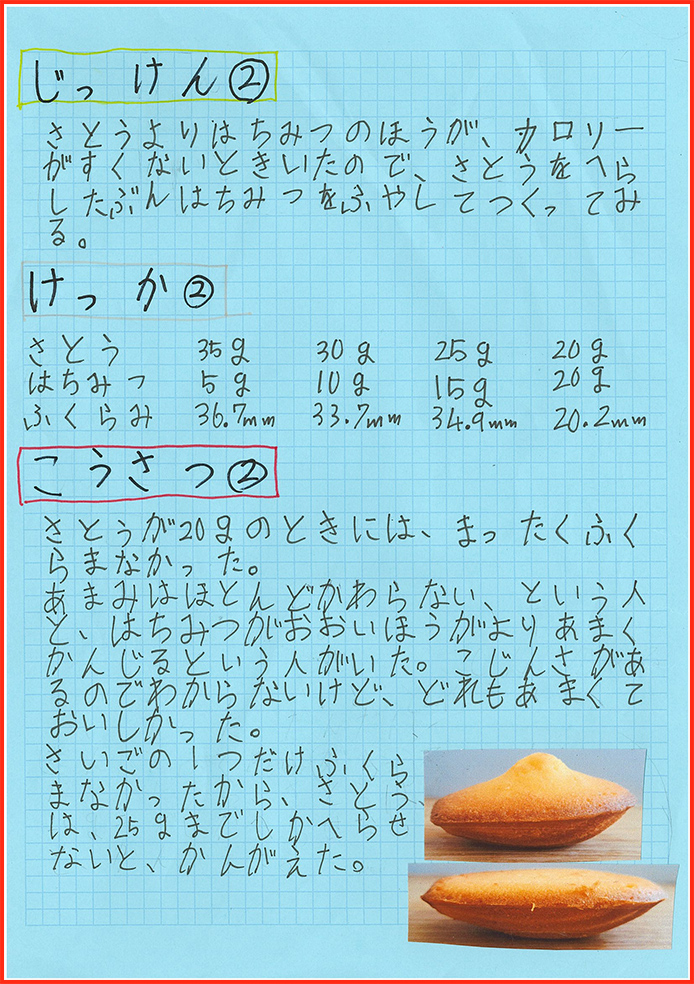 じっけん②
さとうよりはちみつのほうが、カロリー
がすくないときいたので、さとうをへら
したぶんはちみつをふやしてつくってみ
る。
けっか②
さとう 35g 30g 25g 20g
はちみつ 5g 10g 15g 20g
ふくらみ 36.7mm 33.7mm 34.9mm 20.2mm
こうさつ②
さとうが20gのときには、まったくふく
らまなかった。
あまみはほとんどかわらない、という人
と、はちみつがおおいほうがよりあまく
かんじるという人がいた。こじんさがあ
るのでわからないけど、どれもあまくて
おいしかった。
さいごの1つだけふくら
まなかったから、さとう、
は、25gまでしかへらせ
ないと、かんがえた。